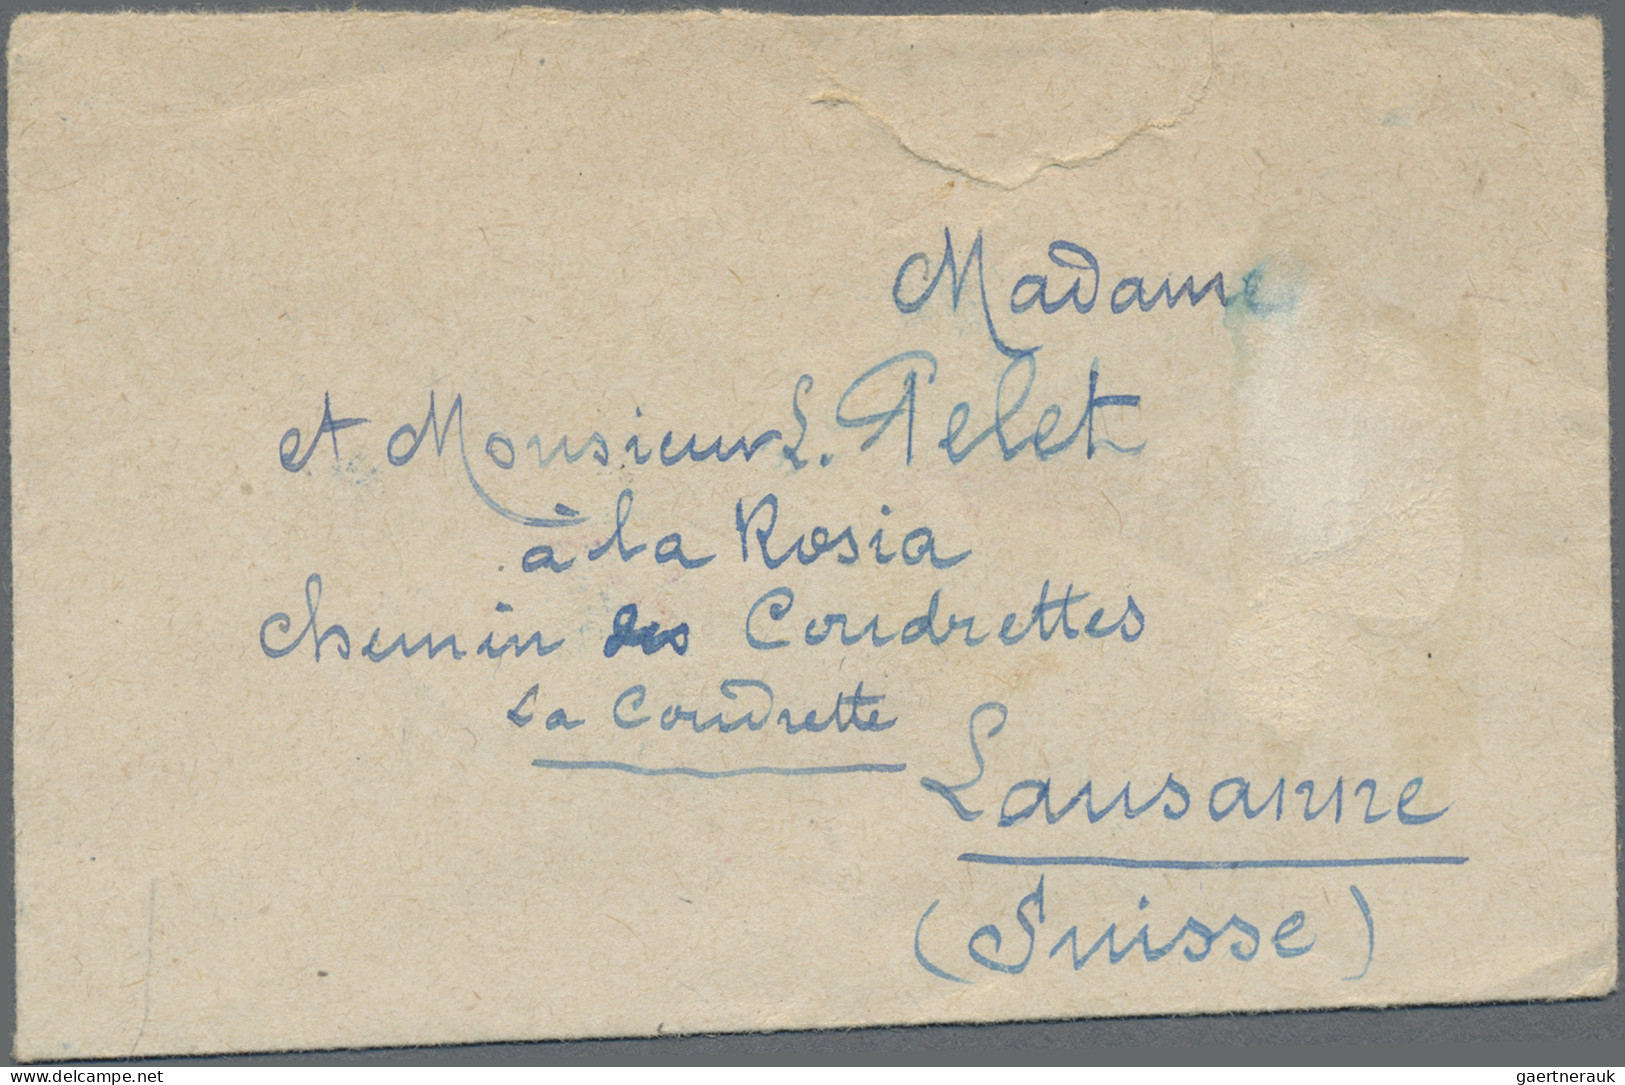 Madame
et Monsieur L. Pelet
à la Rosia
Chemin des Coudrettes
La Coudrette
Lausanne
(Suisse)
www.delcampe.net
gaertnerauk